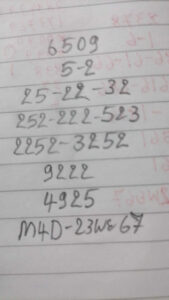 6509
5-2
25-22-32
252-222-523
2252-3252
9222
4925
M4D-23WE67